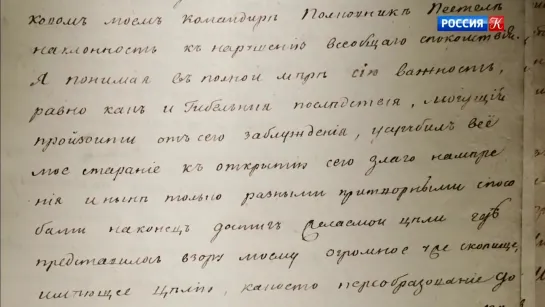 РОССИЯ К
комъ моемъ Командирѣ Полковникѣ Пестелѣ
наклонность къ нарушенію всеобщаго спокойствія.
Я понимая въ полной мѣрѣ сію важность,
равно какъ и Гибельныя послѣдствія, могущій
произойти отъ сего заблужденія, усугубилъ всё
мое стараніе къ открытію сего злаго намѣре
нія и нынѣ только разными притворными спосо
бами наконецъ достигъ желаемой цѣли гдѣ
представилось взору моему огромное уже скопище,
имѣющее цѣлію, какое-то переобразованіе до